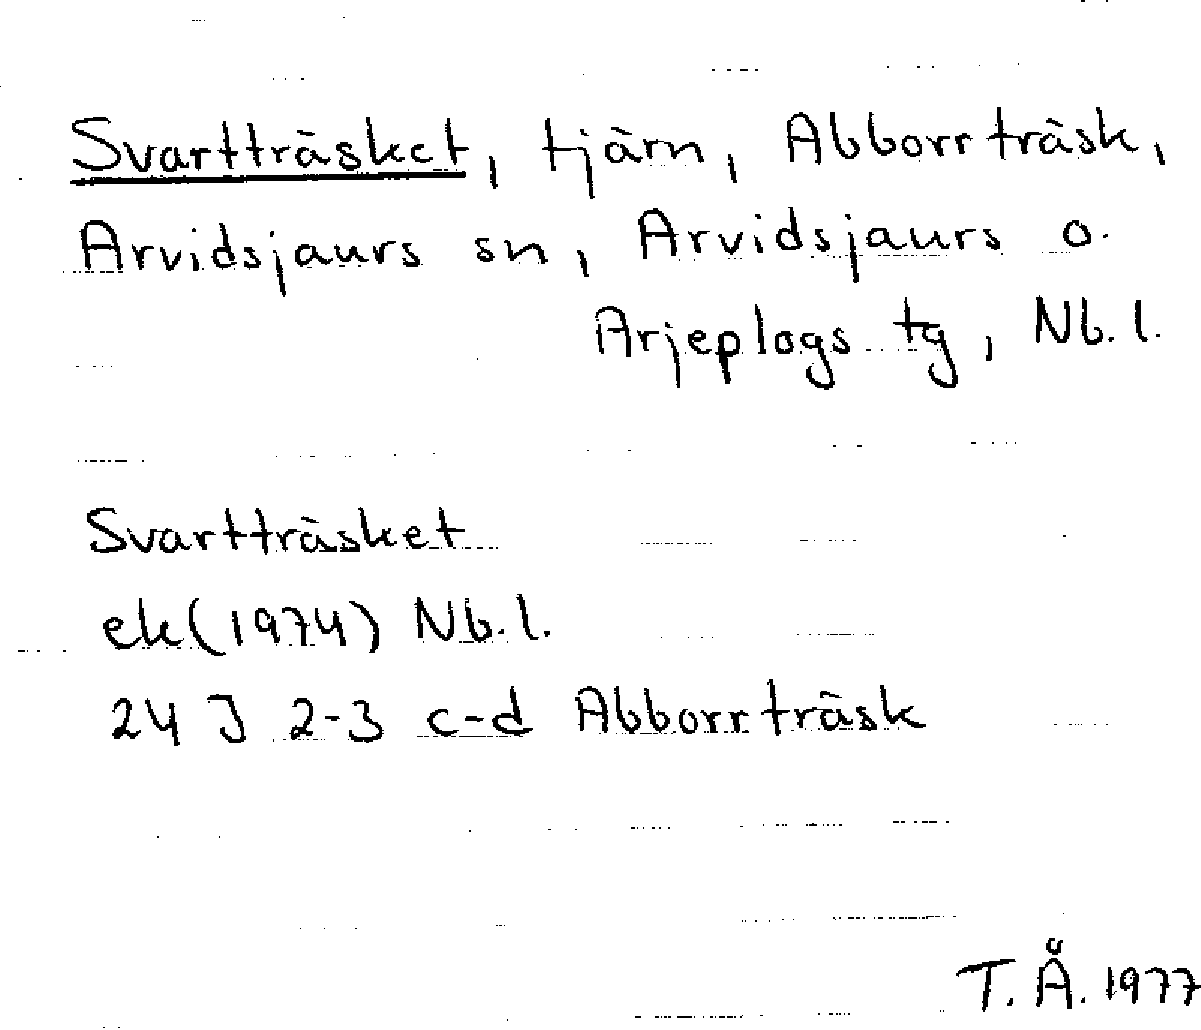 Svartträsket, tjärn, Abborrträsk,
Arvidsjaurs sn, Arvidsjaurs o.
Arjeplogs tg, Nb.l.
Svartträsket
ek(1974) Nb.l.
24 J 2-3 c-d Abborrträsk
T.Å.1977